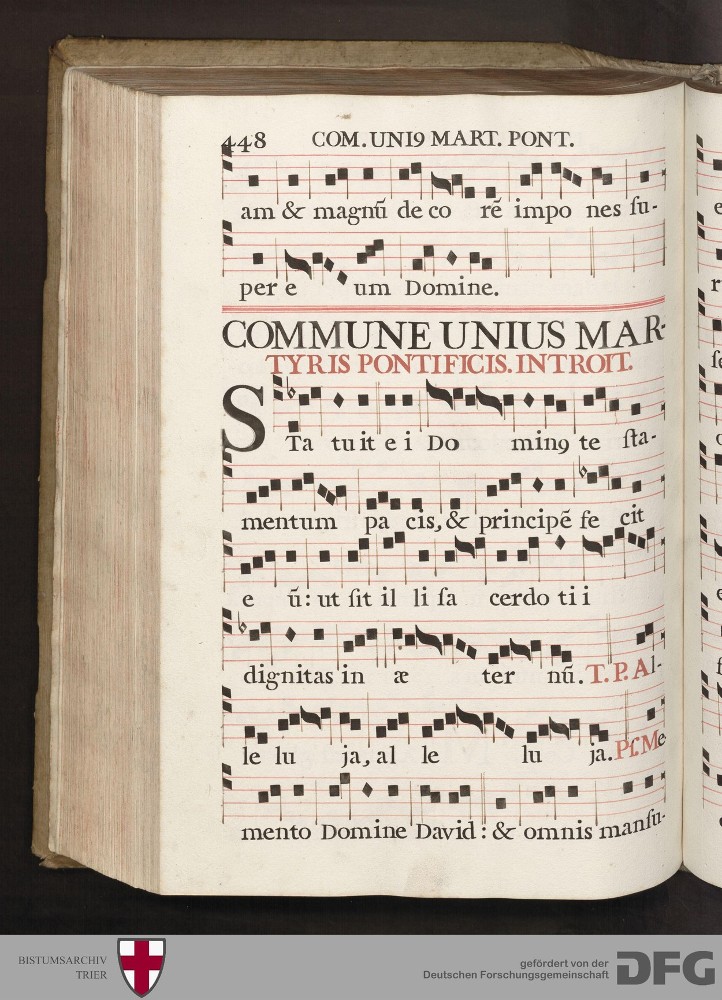 448 COM. UNI9 MART. PONT.
am & magnū de co rē impo nes ſu-
per e um Domine.
COMMUNE UNIUS MAR-
TYRIS PONTIFICIS. INTROIT.
STa tu it e i Do min9 te ſta-
mentum pa cis, & principē fe cit
e ū: ut ſit il li ſa cerdo ti i
dignitas in æ ter nū. T. P. Al-
le lu ja, al le lu ja. Pſ. Me
mento Domine David: & omnis manſu-
BISTUMSARCHIV
TRIER
gefördert von der
Deutschen Forschungsgemeinschaft
DFG